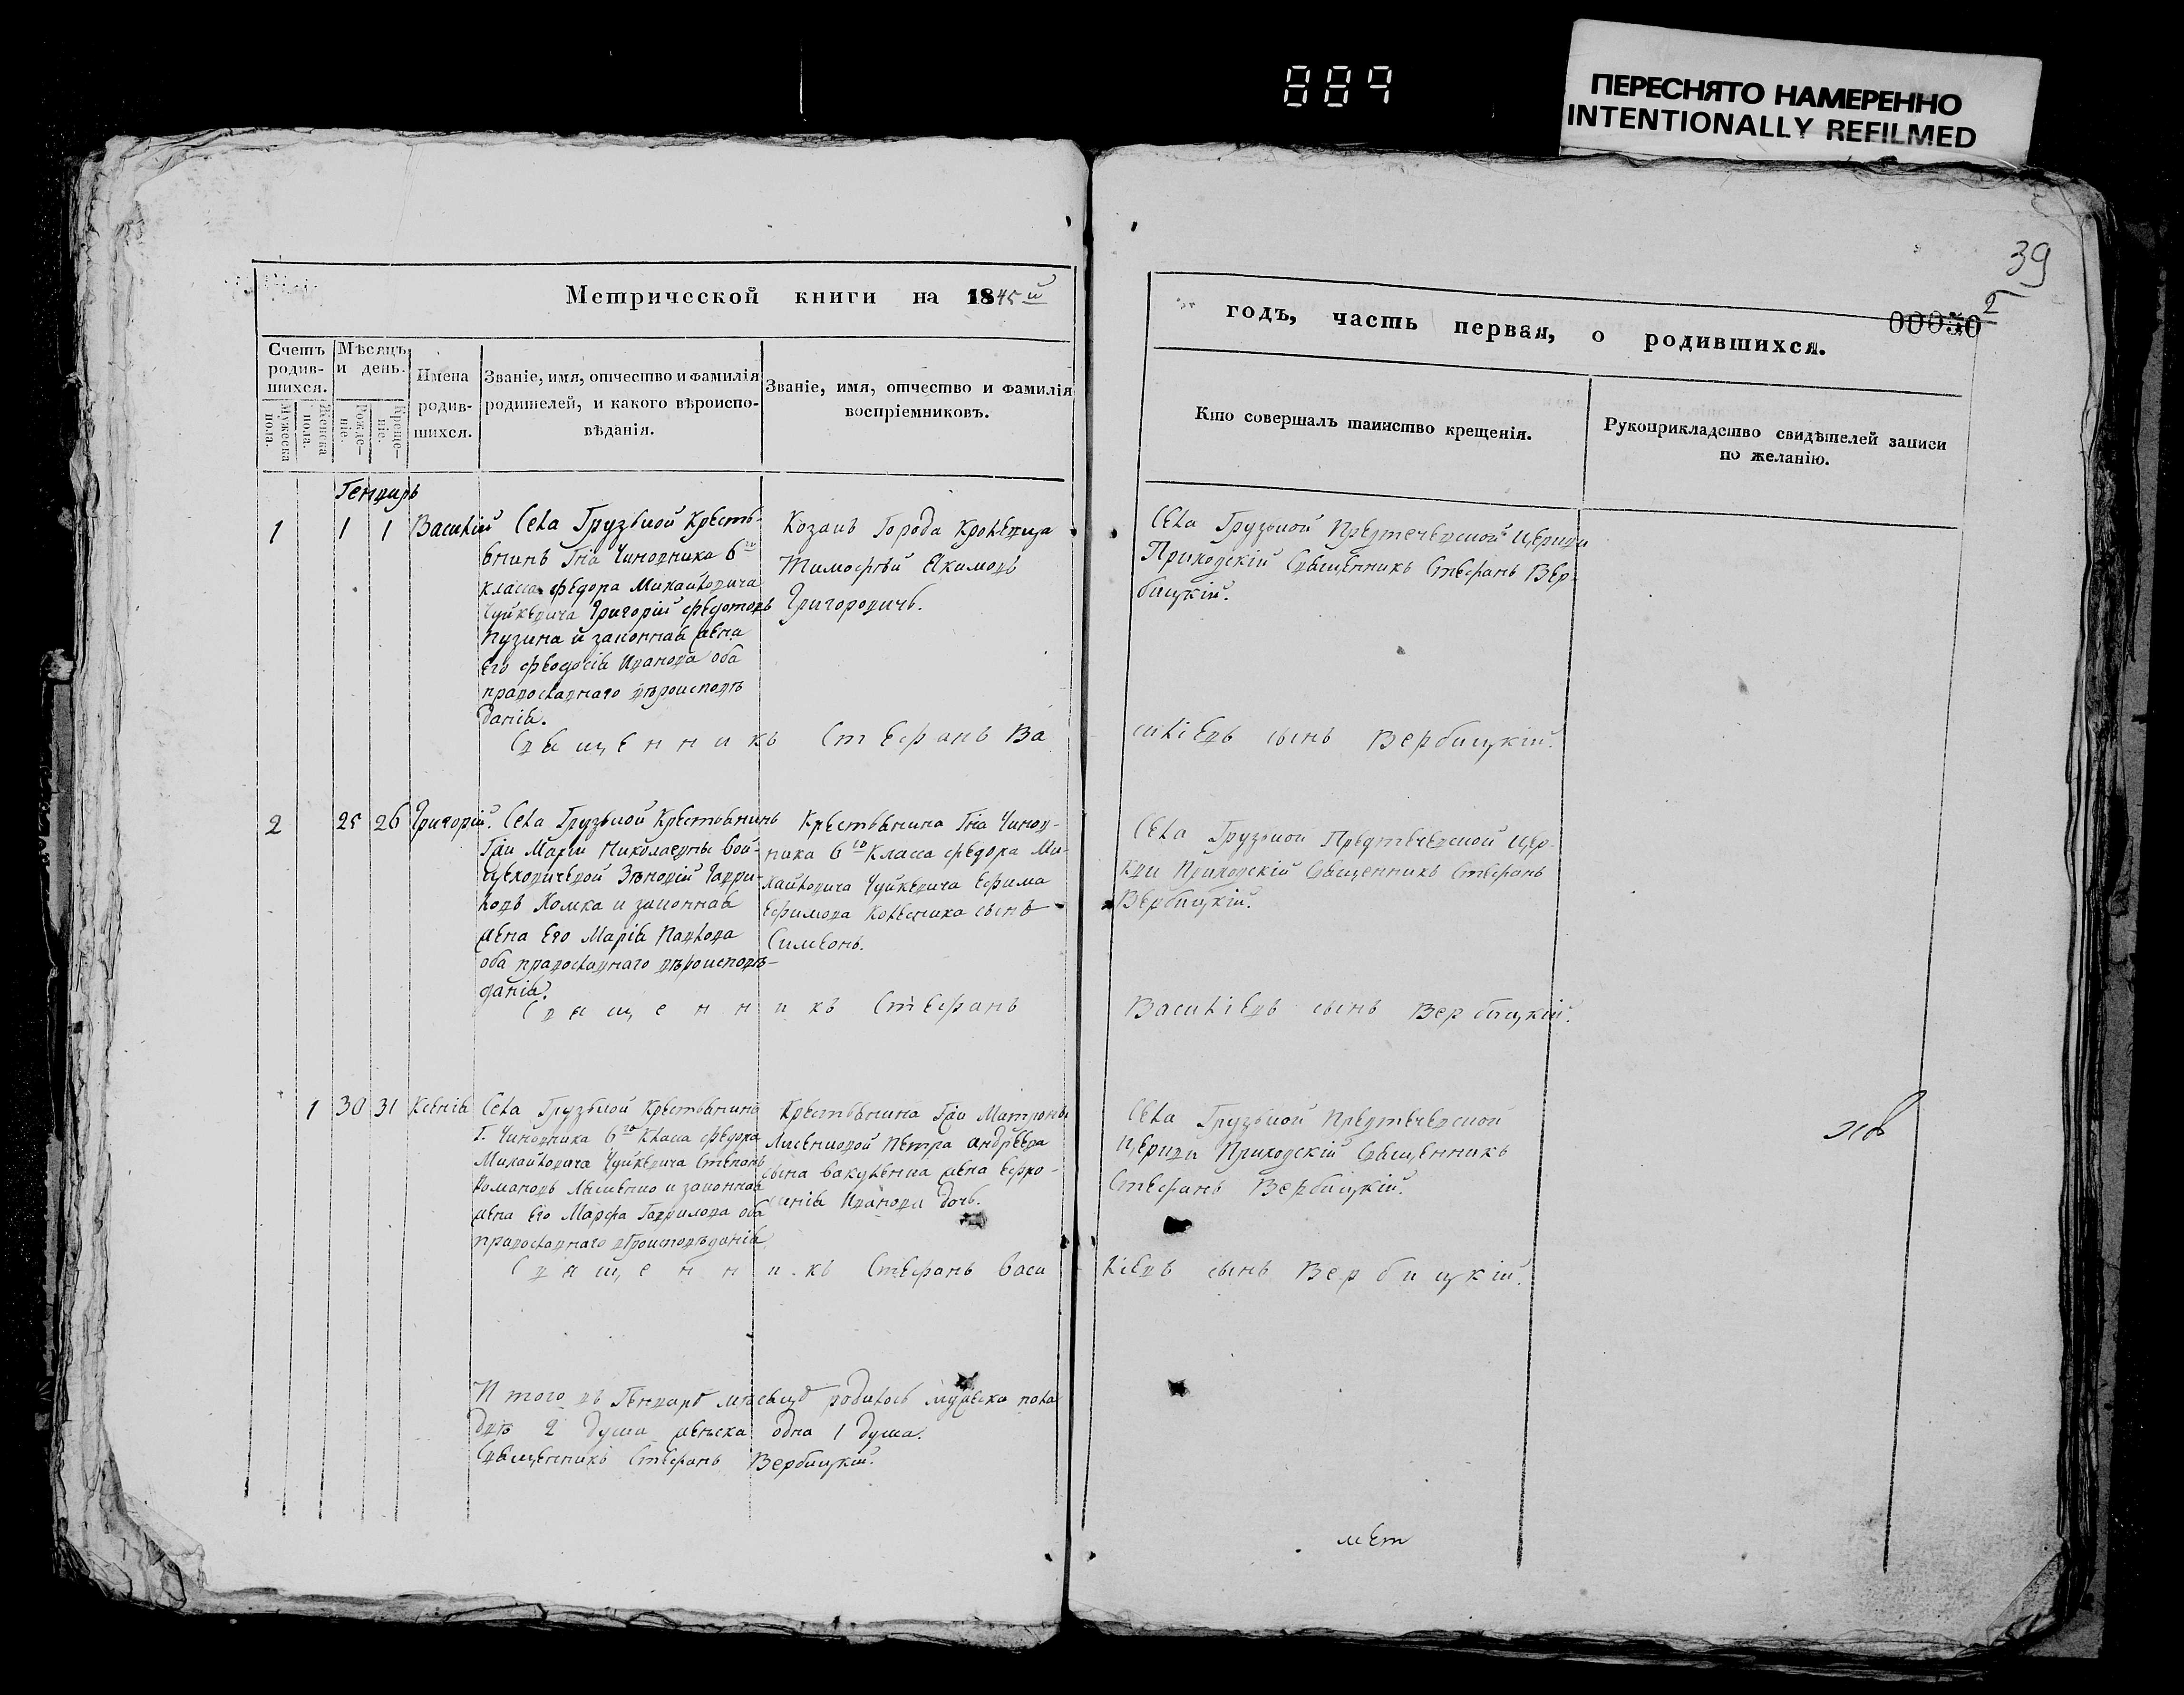 889
ПЕРЕСНЯТО НАМЕРЕННО
INTENTIONALLY REFILMED
39
2
00050
Метрической книги на 1845й
годъ, часть первая, о родившихся.
Счетъ родив-
шихся.
Мужеска
пола.
Женска
пола.
Мѣсяцъ
и день.
Рожде-
ніе.
Креще-
ніе.
Имена
родив-
шихся.
Званіе, имя, отчество и фамилія
родителей, и какого вѣроиспо-
вѣданія.
Званіе, имя, отчество и фамилія
воспріемниковъ.
Кто совершалъ таинство крещенія.
Рукоприкладство свидѣтелей записи
по желанію.
Генварь
1 1 1 Василій
Села Грузьной Кресть-
янинъ Гна Чиновника 6го
класса Федора Михайловича
Чуйкевича Григорій Федотовъ
Пузина и законная жена
его Феодосія Иванова оба
православнаго вѣроисповѣ
данія.
Козакъ Города Кролевца
Тимофей Акимовъ
Григоровичъ.
Села Грузьной Предтечевской Церкви
Приходскій Священникъ Стефанъ Вер-
бицкій.
Священникъ Стефанъ Ва
силіевъ сынъ Вербицкій.
2 25 26 Григорій.
Села Грузьной Крестьянинъ
Гжи Маріи Николаевны Вой-
цеховичевой Зѣновій Гаври-
ловъ Хомка и законная
жена его Марія Павлова
оба православнаго вѣроисповѣ-
данія.
Крестьянина Гна Чинов-
ника 6го Класса Федора Ми-
хайловича Чуйкевича Ефима
Ефимова Колесника сынъ
Симеонъ.
Села Грузьной Предтечевской Цер-
кви Приходскій Священникъ Стефанъ
Вербицкій.
Священникъ Стефанъ
Василіевъ сынъ Вербицкій.
1 30 31 Ксенія
Села Грузьной Крестьянина
Г. Чиновника 6го Класа Федора
Михайловича Чуйкевича Степанъ
Романовъ и законная
жена его Марфа Гаврилова оба
православнаго вѣроисповѣданія
Крестьянина Гжи Матроны
Петра Андреева
сына Вакуленка жена Ефро-
синія Иванова дочь.
Села Грузьной Предтечевской
Церкви Приходскій Священникъ
Стефанъ Вербицкій.
Священникъ Стефанъ Васи
ліевъ сынъ Вербицкій.
Итого въ Генварѣ мѣсяцѣ родилось мужеска пола
двѣ 2 души женска одна 1 душа.
Священникъ Стефанъ Вербицкій.
мет